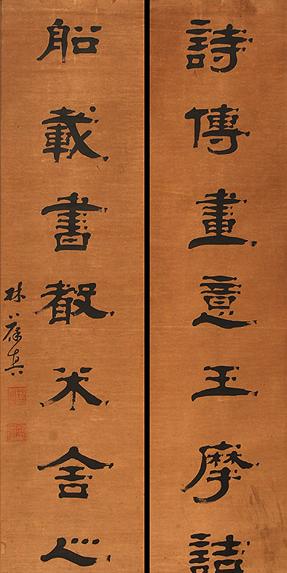 詩傳畫意王摩詰
船載書聲米舍人
林